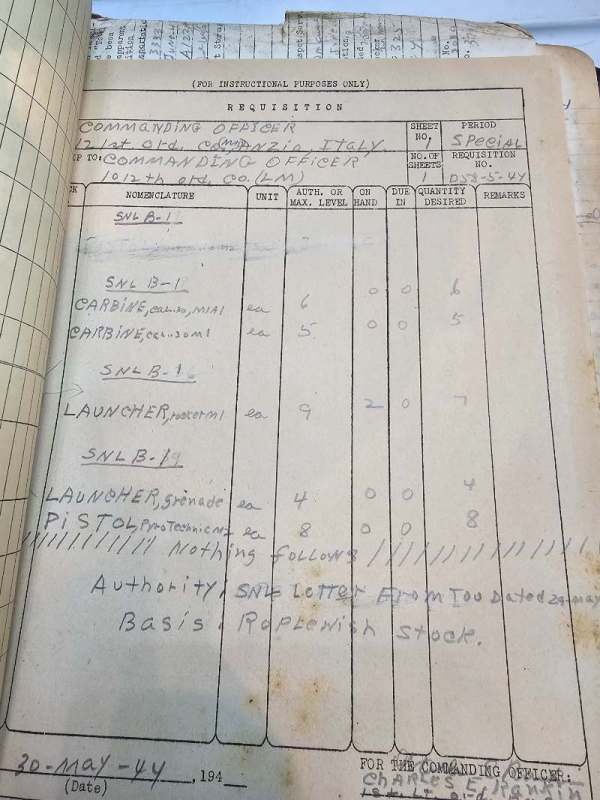 (FOR INSTRUCTIONAL PURPOSES ONLY)
REQUISITION
COMMANDING OFFICER
121st ord. Co. (MM) Anzio, Italy.
SHEET NO.
PERIOD
SPECIAL
P TO: COMMANDING OFFICER
1012th ord. Co. (LM)
NO. OF SHEETS
1
REQUISITION NO.
D58-5-44
NOMENCLATURE UNIT AUTH. OR MAX. LEVEL ON HAND DUE IN QUANTITY DESIRED REMARKS
SNL B-1
SNL B-1
CARBINE, cal..30, M1A1 ea 6 0 0 6
CARBINE, cal..30 M1 ea 5 0 0 5
SNL B-1
LAUNCHER, rocket M1 ea 9 2 0 7
SNL B-19
LAUNCHER, grenade ea 4 0 0 4
PISTOL, PyroTechnic ea 8 0 0 8
////////// Nothing follows //////////////
Authority: SNL Letter From Dated 29-May
Basis: Roplenish stock.
30-May-44, 194
(Date)
FOR THE COMMANDING OFFICER:
CHARLES E. Rankin
1st Lt. ord.